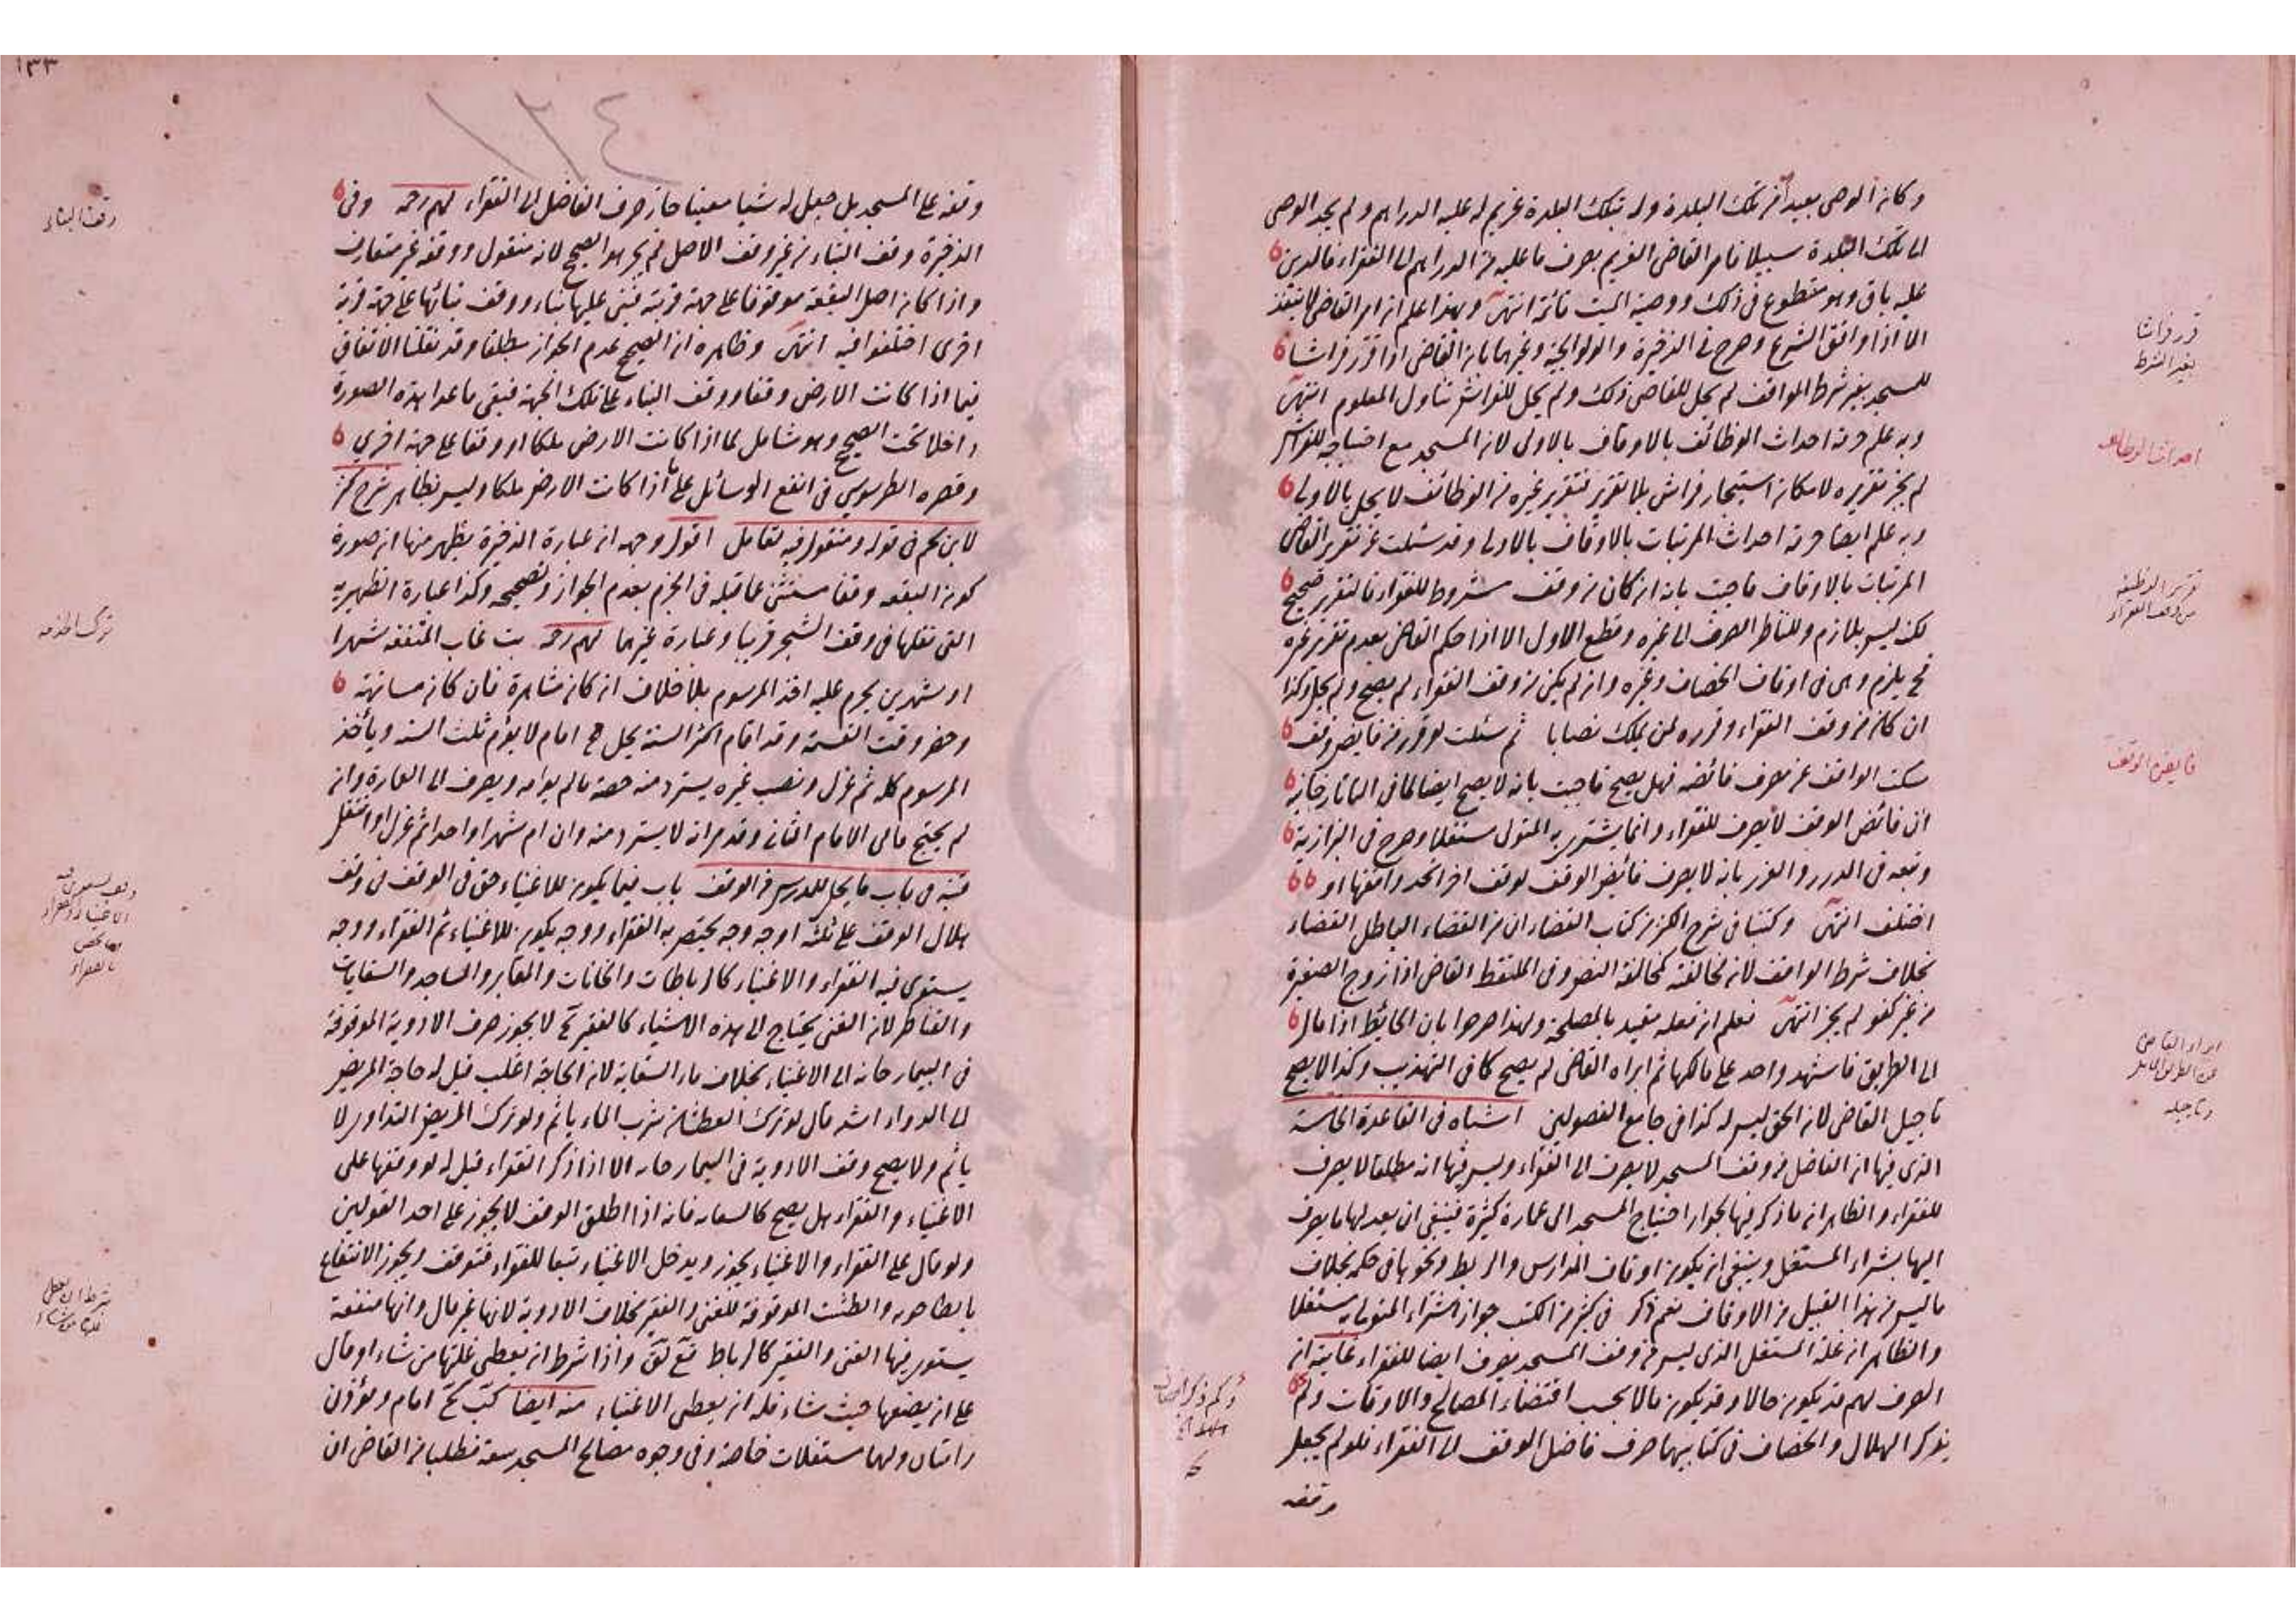 وكان الوصي بعيدا من تلك البلدة وله بتلك البلدة غريم له عليه الدراهم ولم يجد الوصي
الى تلك البلدة سبيلا فامر القاضي الغريم بصرف ما عليه من الدراهم الى الفقراء فالدين
عليه باق وهو متطوع في ذلك ووصية الميت قائمة انتهى وبهذا علم ان امر القاضي لا ينفذ
الا اذا وافق الشرع وصرح في الذخيرة والولوالجية وغيرهما بان القاضي اذا قرر فراشا
للمسجد بغير شرط الواقف لم يحل للقاضي ذلك ولم يحل للفراش تناول المعلوم انتهى
وبه علم حرمة احداث الوظائف بالاوقاف بالاولى لان المسجد مع احتياجه للفراش
لم يجز تقريره لامكان استيجار فراش بلا تقرير فتقرير غيره من الوظائف لا يحل بالاولى
وبه علم ايضا حرمة احداث المرتبات بالاوقاف بالاولى وقد سئلت عن تقرير القاضي
المرتبات بالاوقاف فاجبت بانه ان كان من وقف مشروط للفقراء فالتقرير صحيح
لكنه ليس بلازم وللناظر الصرف الى غيره وقطع الاول الا اذا حكم القاضي بعدم تقرير غيره
فح يلزم وهى في اوقاف الخصاف وغيره وان لم يكن من وقف الفقراء لم يصح ولم يحل وكذا
ان كان من وقف الفقراء وقرره لمن يملك نصابا ثم سئلت لو قرر من فايض وقف
سكت الواقف عن مصرف فائضه فهل يصح فاجبت بانه لا يصح ايضا لما في التاتارخانية
ان فائض الوقف لا يصرف للفقراء وانما يشترى به المتولى مستغلا وصرح في البزازية
وتبعه في الدرر والغرر بانه لا يصرف فائض الوقف لوقف اخر اتحد واقفهما او
اختلف انتهى وكتبنا في شرح الكنز من كتاب القضاء ان من القضاء الباطل القضاء
بخلاف شرط الواقف لان مخالفته كمخالفة النص وفي الملتقط القاضي اذا زوج الصغيرة
من غير كفو لم يجز انتهى فعلم ان فعله مقيد بالمصلحة ولهذا صرحوا بان الحائط اذا مال
الى الطريق فاشهد واحد على مالكها ثم ابراه القاضي لم يصح كما في التهذيب وكذا لا يصح
تاجيل القاضي لان الحق ليس له كذا في جامع الفصولين اشباه في القاعدة الخامسة
الذى فيها ان الفاضل من وقف المسجد لا يصرف الى الفقراء وليس فيها انه مطلقا لا يصرف
للفقراء والظاهر انه ما ذكر فيها لجواز احتياج المسجد الى عمارة كثيرة فينبغي ان يعد لها ما يصرف
اليها بشراء المستغل وينبغي ان يكون اوقاف المدارس والربط ونحوها في حكمه بخلاف
ما ليس من هذا القبيل من الاوقاف نعم ذكر في كثير من الكتب جواز اشتراء المتولي به مستغلا
والظاهر ان غلة المستغل الذى ليس من وقف المسجد يصرف ايضا للفقراء غايته ان
الصرف لهم قد يكون حالا وقد يكون مالا بحسب اقتضاء المصالح والاوقات ولم
يذكر الهلال والخصاف في كتابيهما صرف فاضل الوقف الى الفقراء فلو لم يجعل
وقفه
قرر فراشا
بغير الشرط
احداث الوظائف
تقرير الوظيفة
من وقف الفقراء
فايض الوقف
ابراء القاضي
وتاجيله
١٣٣
١٣٤
وقفه على المسجد بل جعل له شيا معينا جاز صرف الفاضل الى الفقراء لهم رحمه وفي
الذخيرة وقف البناء من غير وقف الاصل لم يجز هو الصحيح لانه منقول ووقفه غير متعارف
واذا كان اصل البقعة موقوفا على جهة قربة فبنى عليها بناء ووقف بنائها على جهة قربة
اخرى اختلفوا فيه انتهى وظاهره ان الصحيح عدم الجواز مطلقا وقد نقلنا الاتفاق
فيما اذا كانت الارض وقفا ووقف البناء على تلك الجهة فبقى ما عدا هذه الصورة
داخلا تحت الصحيح وهو شامل لما اذا كانت الارض ملكا او وقفا على جهة اخرى
وقصره الطرسوسي في انفع الوسائل على ما اذا كانت الارض ملكا وليس بظاهر شرح كنز
لابن نجم في قوله ومنقول فيه تعامل اقول وجهه ان عبارة الذخيرة يظهر منها ان صورة
كون البقعة وقفا مستثنى عما قبله في الجزم بعدم الجواز وتصحيحه وكذا عبارة الظهيرية
التي نقلها في وقف الشجر قريبا وعبارة غيرهما لهم رحمه بت غاب المتفقه شهرا
او شهرين يحرم عليه اخذ المرسوم بلا خلاف ان كان مشاهرة فان كان مسانهة
وحضر وقت القسمة وقد اقام اكثر السنة يحل مح امام لا يؤم ثلث السنة ويأخذ
المرسوم كله ثم عزل ونصب غيره يسترد منه حصة ما لم يؤامه ويصرف الى العمارة وان
لم يحتج فالى الامام الثاني وقد مر انه لا يسترد منه وان ام شهرا واحدا ثم عزل او انتقل
قنية في باب ما يحل للمدرس من الوقف باب فيما يكون للاغنياء حق في الوقف في وقف
هلال الوقف على ثلثة اوجه وجه يختص به الفقراء ووجه يكون للاغنياء ثم الفقراء ووجه
يستوى فيه الفقراء والاغنياء كالرباطات والخانات والمقابر والمساجد والسقايات
والقناطر لان الغنى يحتاج الى هذه الاشياء كالفقير مح لا يجوز صرف الادوية الموقوفة
في البيمارخانه الى الاغنياء بخلاف ماء السقاية لان الحاجة اغلب قيل له حاجة المريض
الى الدواء اشد قال لو ترك العطشان شرب الماء ياثم ولو ترك المريض التداوى لا
ياثم ولا يصح وقف الادوية في البيمارخانه الا اذا ذكر الفقراء قيل له لو وقفها على
الاغنياء والفقراء هل يصح كالسقايه فانه اذا اطلق الوقف لا يجوز على احد القولين
ولو قال على الفقراء والاغنياء يجوز ويدخل الاغنياء تبعا للفقراء فتوقف ويجوز الانتفاع
بالطاحونه والطشت الموقوفة للغنى والفقير بخلاف الادوية لانها غير مال وانها منفعة
يستوى فيها الغنى والفقير كالرباط واذا شرط ان يعطى غلتها من شاء او قال
على ان يضعها حيث شاء فله ان يعطى الاغنياء منه ايضا امام ومؤذن
راتبان ولهما مستغلات خاصة وفي وجوه مصالح المسجد سعة فطلبا من القاضي ان
وقف البناء
ترك الخدمه
وقف يستوى فيه
الاغنياء والفقراء
وما يختص
بالفقراء
شرط ان يعطى
غلتها من شاء